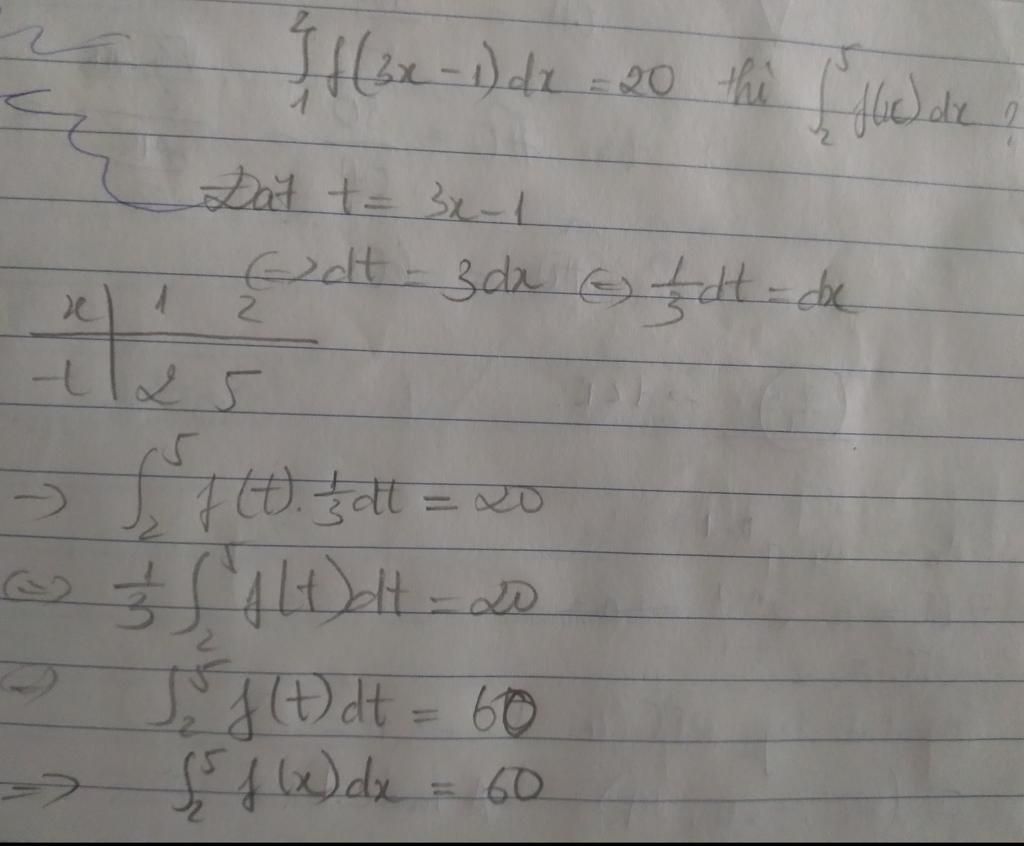 ∫₁² f(3x-1)dx = 20 thì ∫₂⁵ f(x)dx ?
Đặt t = 3x-1
<=> dt = 3dx <=> 1/3 dt = dx
x | 1 2
t | 2 5
-> ∫₂⁵ f(t). 1/3 dt = 20
<=> 1/3 ∫₂⁵ f(t)dt = 20
=> ∫₂⁵ f(t)dt = 60
=> ∫₂⁵ f(x)dx = 60